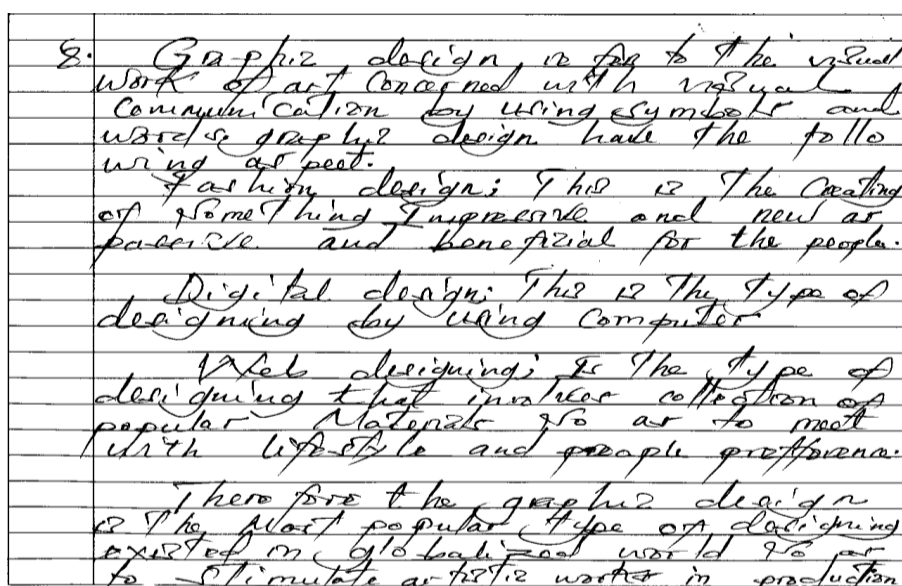 8. Graphic design is for to the visual
work of art concerned with visual
communication by using symbols and
words graphic design have the follo
wing aspect.
Fashion design; This is the Creating
of something Impressive and new as
passive and beneficial for the people.
Digital design: This is the type of
designing by using Computer
Web designing; Is the type of
designing that involves collection of
popular Materials so as to meet
with lifestyle and people prefference.
There fore the graphic design
is the Most popular type of designing
existed in globalized world so as
to stimulate artistic worker in production